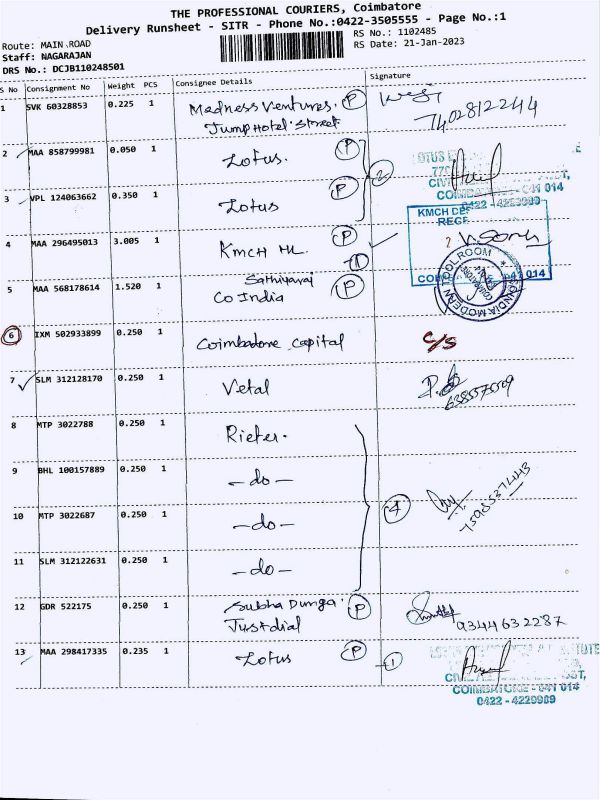 THE PROFESSIONAL COURIERS, Coimbatore
Delivery Runsheet - SITR - Phone No.:0422-3505555 - Page No.:1
Route: MAIN ROAD
RS No.: 1102485
Staff: NAGARAJAN
RS Date: 21-Jan-2023
DRS No.: DCJB110248501
S No Consignment No Weight PCS Consignee Details Signature
1 SVK 60328853 0.225 1 Madness Ventures. P
Jump Hotel Street 7402812244
2 MAA 858799981 0.050 1 Lotus. P
3 VPL 124063662 0.350 1 Lotus P 2
COIMBATORE - 641 014
0422 - 4229989
4 MAA 296495013 3.005 1 KMCH HL P
KMCH
5 MAA 568178614 1.520 1 Sathiyaraj
Co India P
6 IXM 502933899 0.250 1 Coimbatore capital C/S
7 SLM 312128170 0.250 1 Vetal
6385575509
8 MTP 3022788 0.250 1 Rieter.
9 BHL 100157889 0.250 1 -do-
10 MTP 3022687 0.250 1 -do- 4
7598537443
11 SLM 312122631 0.250 1 -do-
12 GDR 522175 0.250 1 Subha Dunga P
Justdial 9344632287
13 MAA 298417335 0.235 1 Lotus P -1
COIMBATORE - 641 014
0422 - 4229989